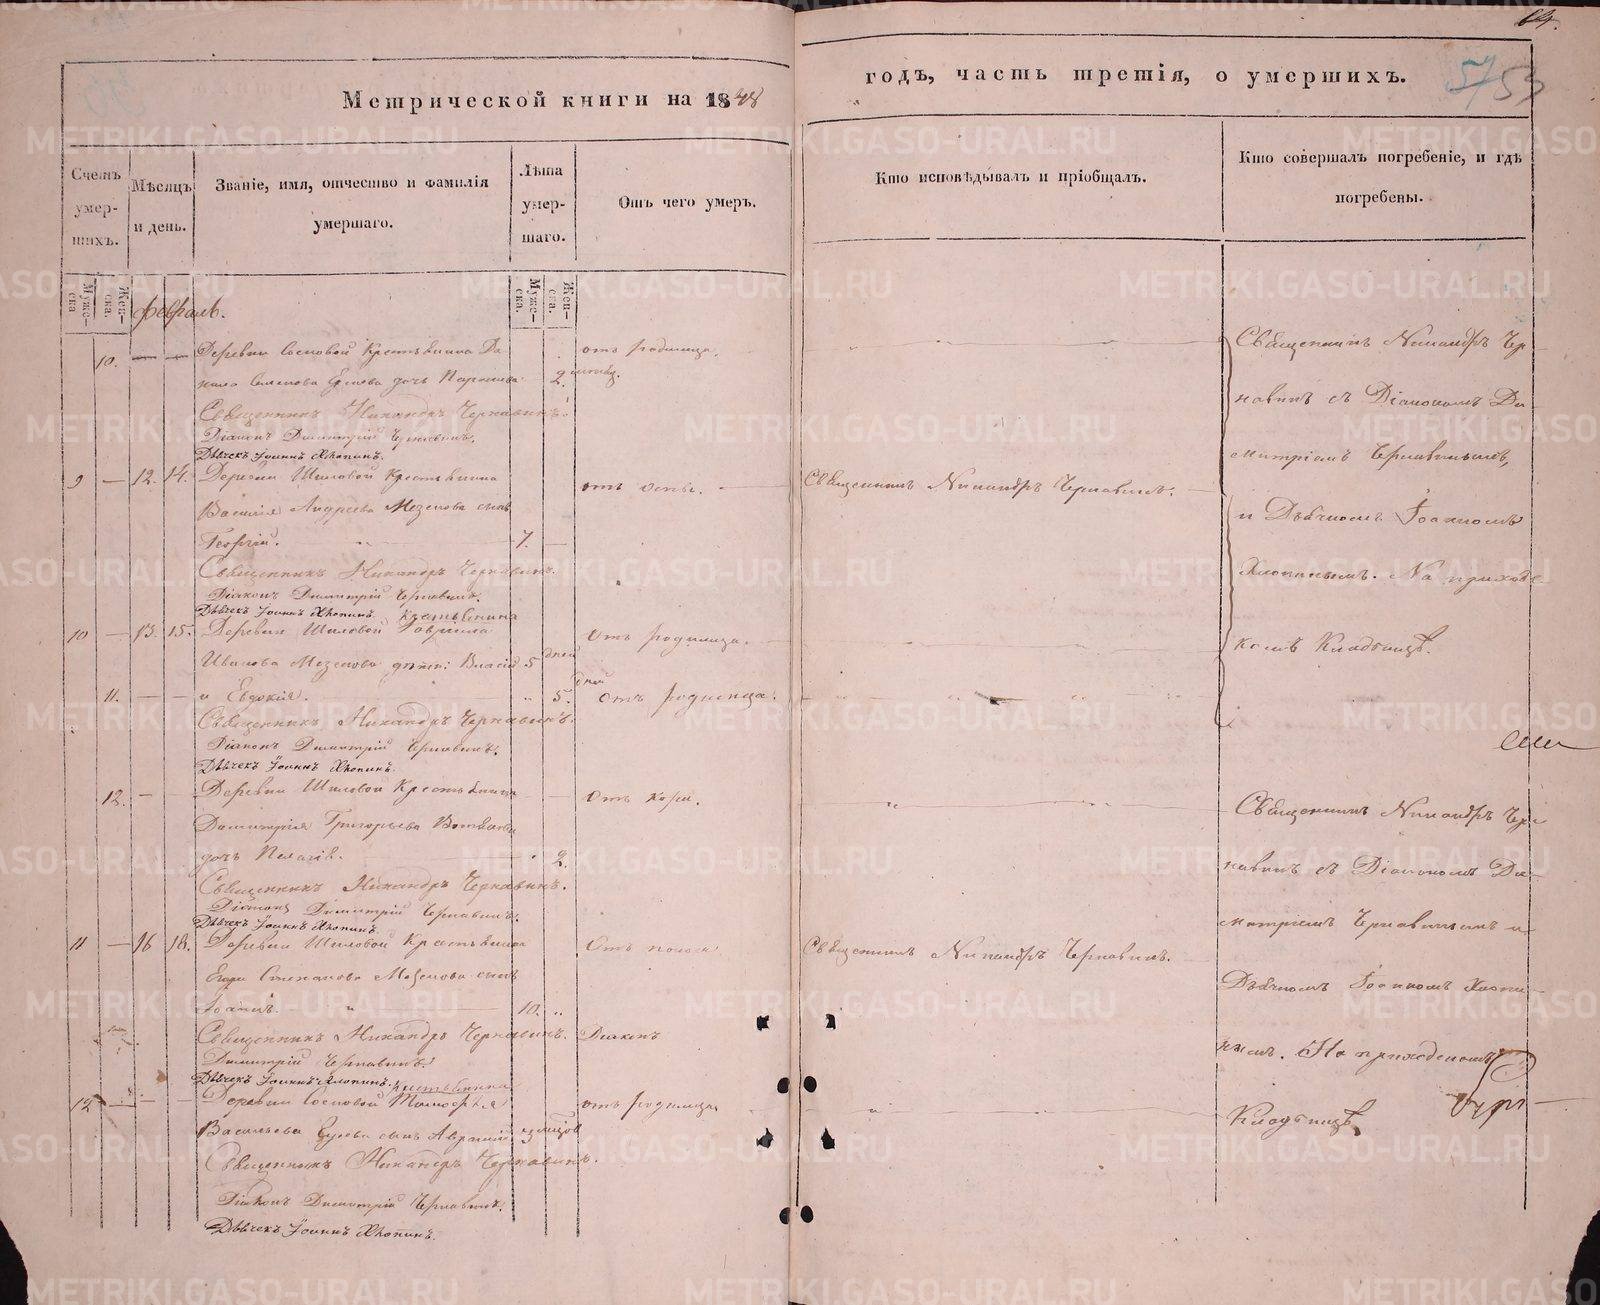 64.
57 53
Метрической книги на 1848
годъ, часть третія, о умершихъ.
Счетъ умер-шихъ.
Мѣсяцъ и день.
Званіе, имя, отчество и фамилія умершаго.
Лѣта умер-шаго.
Отъ чего умеръ.
Кто исповѣдывалъ и пріобщалъ.
Кто совершалъ погребеніе, и гдѣ погребены.
Муже-ска
Жен-ска.
Муже-ска.
Жен-ска.
Февраль.
10. Деревни Сосновой Крестьянина Да-
нила дочь 2.
отъ родимца.
Священникъ Никандръ Чернавинъ.
Діаконъ Димитрій Чернавинъ.
Дьячекъ Іоаннъ Хлопинъ.
9 — 12. 14. Деревни Шиловой Крестьянина отъ оспы. Священникъ Никандръ Чернавинъ.
Василія Андреева Мезенова сынъ
Георгій. 7.
Священникъ Никандръ Чернавинъ.
Діаконъ Димитрій Чернавинъ.
Дьячекъ Іоаннъ Хлопинъ. крестьянина
10 — 13. 15. Деревни Шиловой Гавріила Отъ родимца.
Иванова Мезенова дѣти: Власій 5 дней
11. — — и Евдокія. 5. дней Отъ родимца.
Священникъ Никандръ Чернавинъ.
Діаконъ Димитрій Чернавинъ.
Дьячекъ Іоаннъ Хлопинъ.
12. — — Деревни Шиловой Крестьянина Отъ кори.
Димитрія Григорьева
дочь Пелагія. 2.
Священникъ Никандръ Чернавинъ.
Діаконъ Димитрій Чернавинъ.
Дьячекъ Іоаннъ Хлопинъ.
11 — 16 18. Деревни Шиловой Крестьянина Священникъ Никандръ Чернавинъ.
Егора Степанова Мезенова сынъ
Іоаннъ. 10.
Священникъ Никандръ Чернавинъ. Діаконъ
Димитрій Чернавинъ.
Дьячекъ Іоаннъ Хлопинъ. крестьянина
12 — — — Деревни Сосновой Тимофея отъ родимца
Васильева сынъ
Священникъ Никандръ Чернавинъ.
Діаконъ Димитрій Чернавинъ.
Дьячекъ Іоаннъ Хлопинъ.
Священникъ Никандръ Чер-
навинъ съ Діакономъ Ди-
митріемъ Чернавинымъ,
и Дьячкомъ Іоанномъ
Хлопинымъ. На приход-
скомъ Кладбищѣ.
Священникъ Никандръ Чер-
навинъ съ Діакономъ Ди-
митріемъ Чернавинымъ и
Дьячкомъ Іоанномъ Хлопи-
нымъ. На приходскомъ
Кладбищѣ.